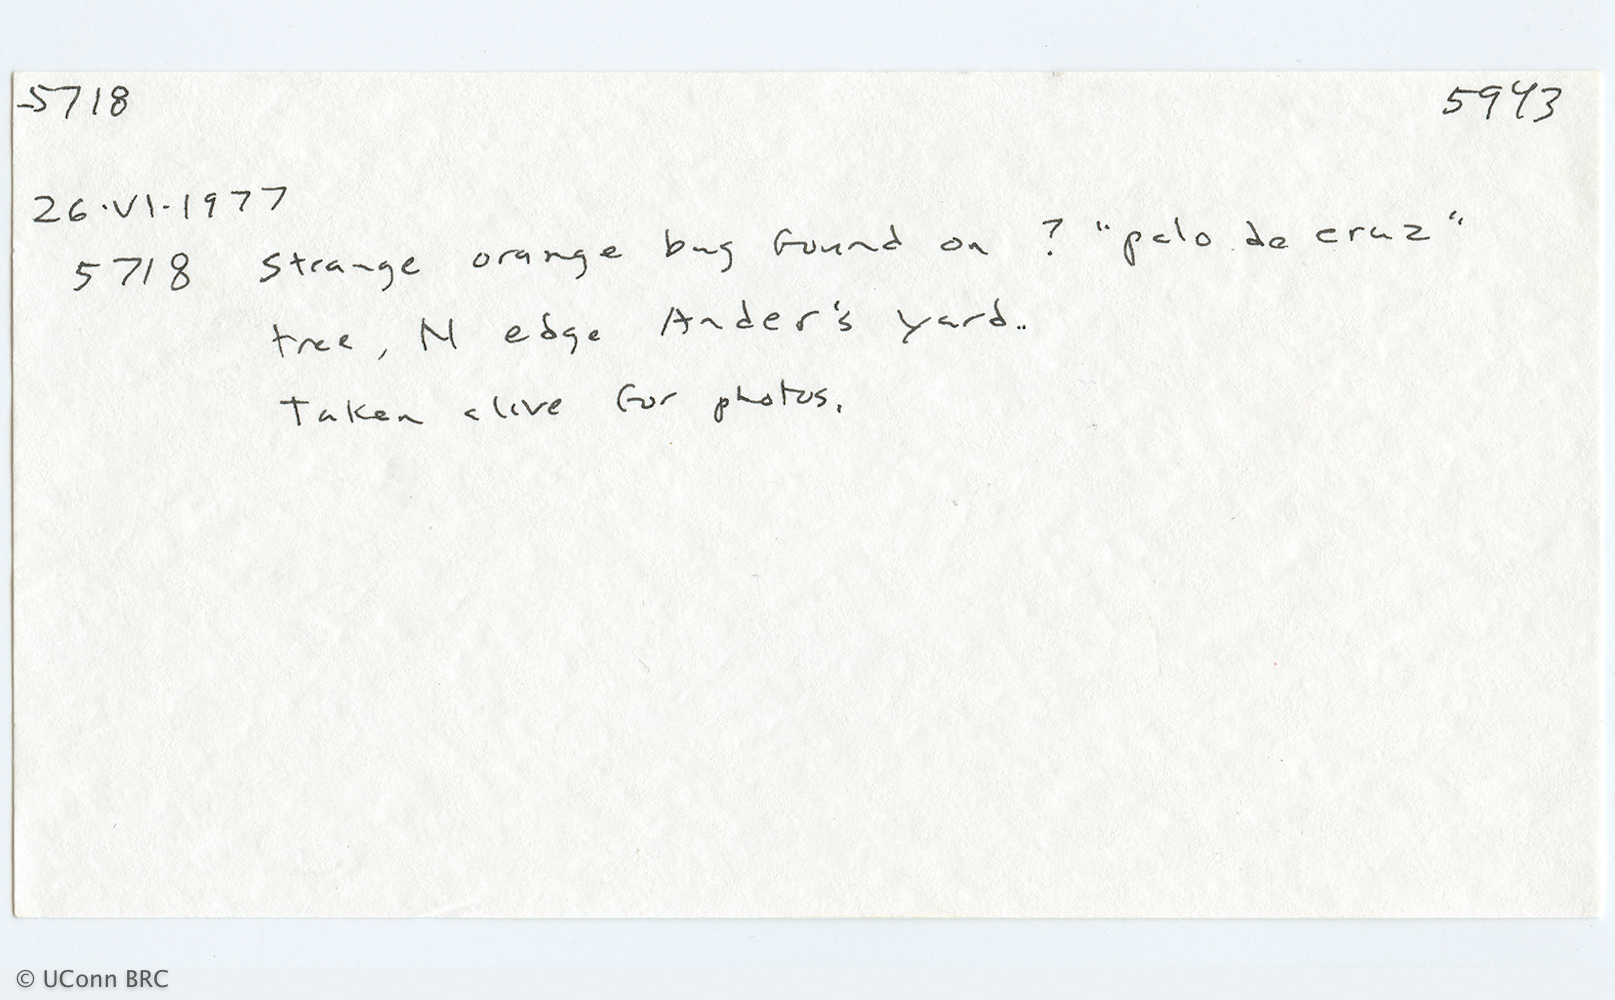 5718 5943
26·VI·1977
5718 Strange orange bug found on ? "palo de cruz"
tree, N edge Ander's yard..
Taken alive for photos.
© UConn BRC